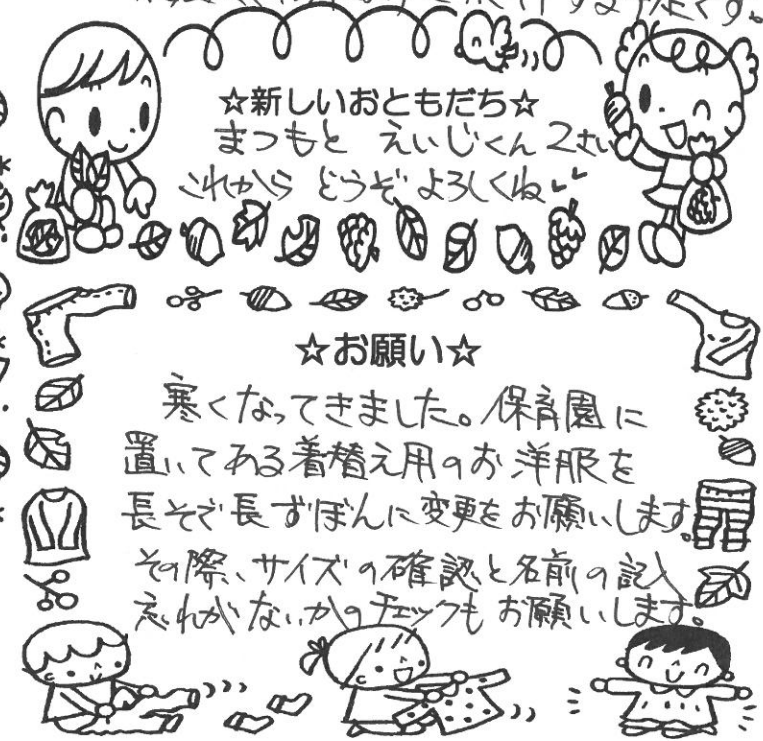 ☆新しいおともだち☆
まつもと えいじくん 2さい
これから どうぞ よろしくね
☆お願い☆
寒くなってきました。保育園に
置いてある着替え用のお洋服を
長そで長ずぼんに変更をお願いします
その際、サイズの確認と名前の記入
忘れがないかのチェックもお願いします。